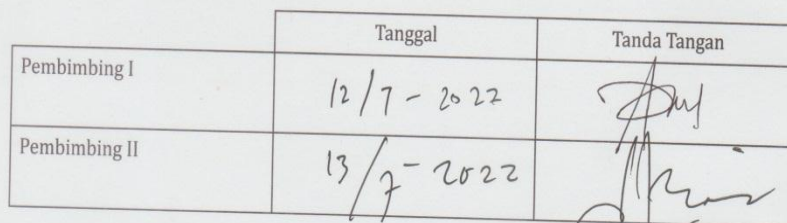 Tanggal Tanda Tangan
Pembimbing I 12/7 - 2022
Pembimbing II 13/7 - 2022